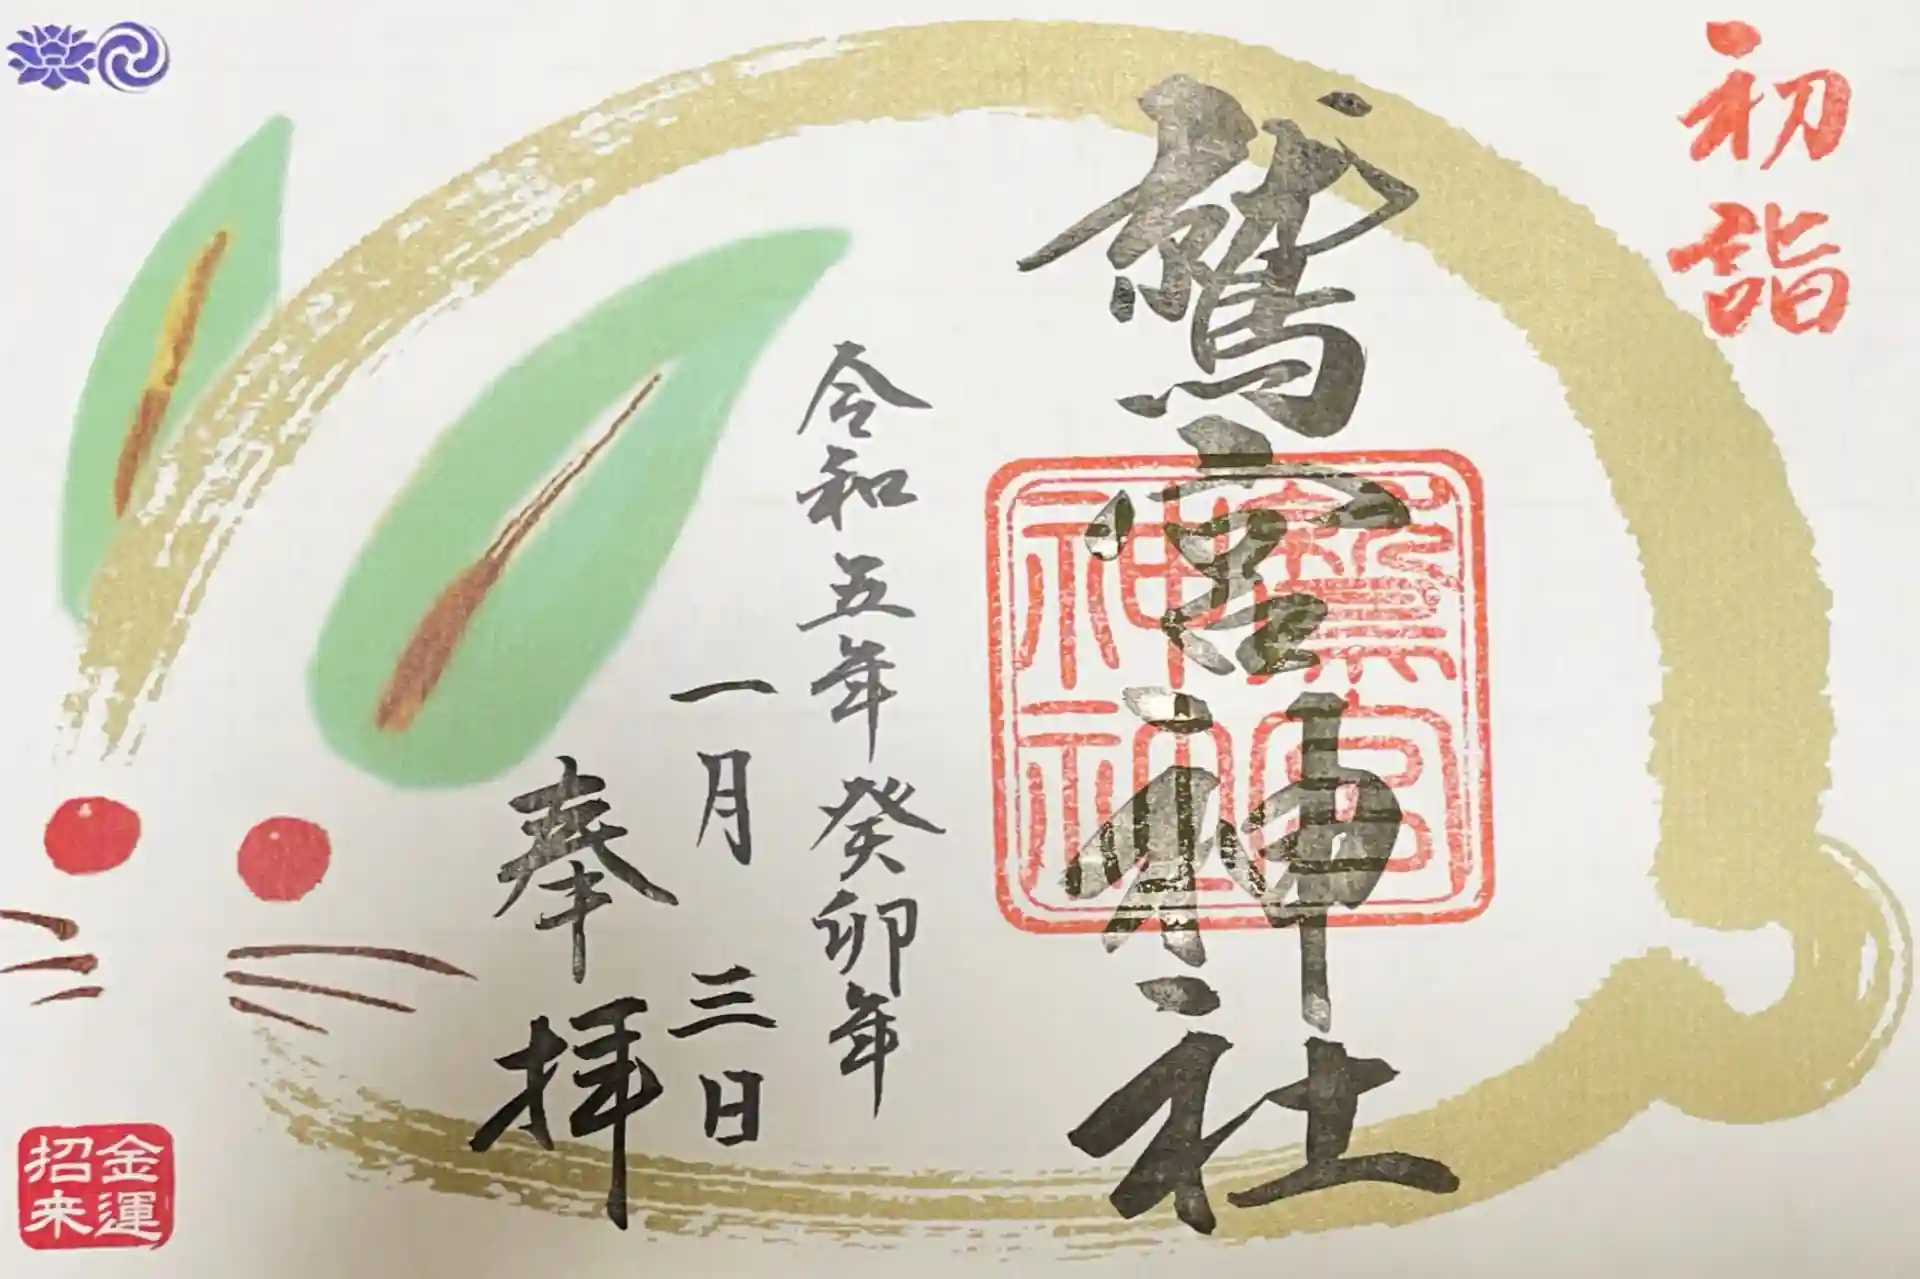 初詣
鷲宮神社
鷲宮神社
令和五年癸卯年
一月三日
奉拝
金運
招来